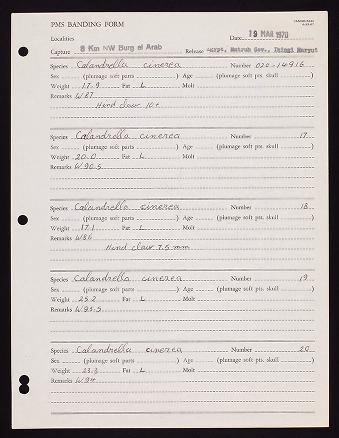 PMS BANDING FORM
Localities Date: 19 MAR 1970
Capture 8 Km NW Burg el Arab Release Egypt, Matruh Gov., Ikingi Maryut
Species Calandrella cinerea Number 020-14916
Sex (plumage soft parts ) Age (plumage soft pts. skull )
Weight 17.9 Fat L Molt
Remarks W 87
Hind claw 10+
Species Calandrella cinerea Number 17
Sex (plumage soft parts ) Age (plumage soft pts. skull )
Weight 20.0 Fat L Molt
Remarks W 90.5
Species Calandrella cinerea Number 18
Sex (plumage soft parts ) Age (plumage soft pts. skull )
Weight 17.1 Fat L Molt
Remarks W 86
Hind claw 7.5 mm
Species Calandrella cinerea Number 19
Sex (plumage soft parts ) Age (plumage soft pts. skull )
Weight 25.2 Fat L Molt
Remarks W 95.5
Species Calandrella cinerea Number 20
Sex (plumage soft parts ) Age (plumage soft pts. skull )
Weight 23.3 Fat L Molt
Remarks W 94